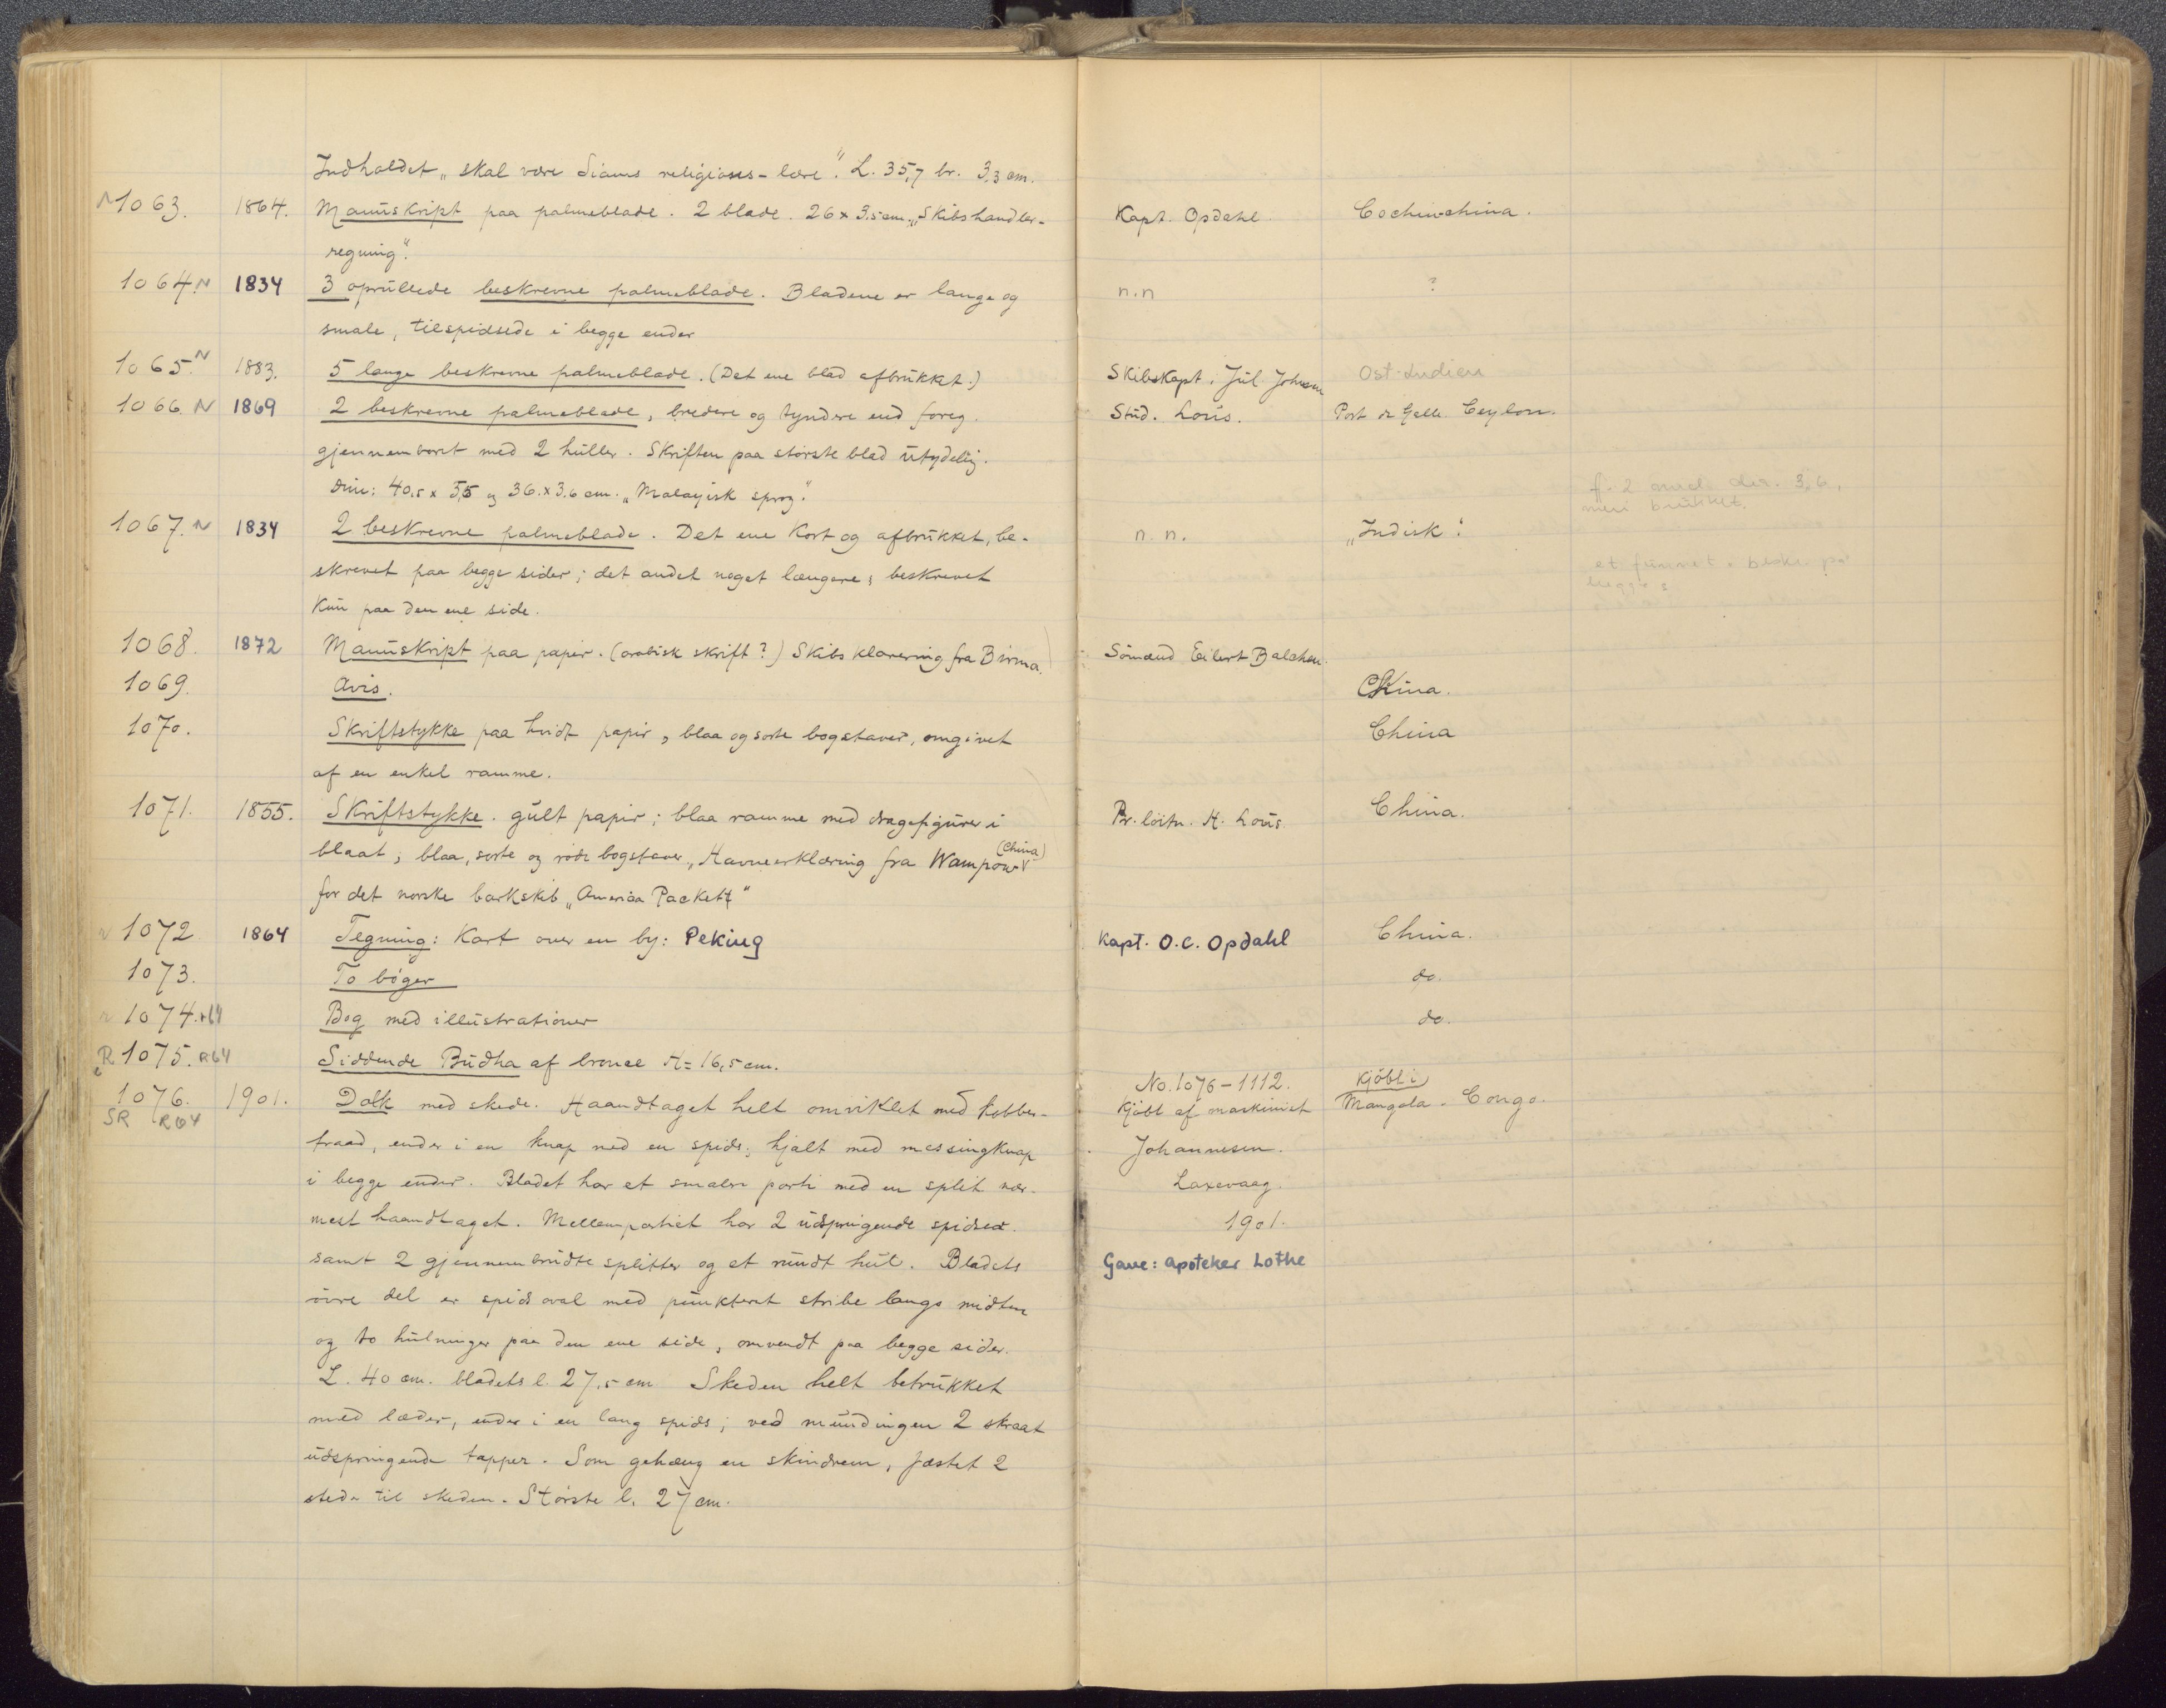 Indholdet „skal være Siams religiøses-lære". L. 35,7 br. 3,3 cm.
N 1063. 1864. Manuskript paa palmeblade. 2 blade. 26 x 3.5 cm. „Skibshandler- Kapt. Opdahl. Cochinchina.
regning".
1064. N 1834 3 oprullede beskrevne palmeblade. Bladene er lange og n.n ?
smale, tilspidsede i begge ender
1065. N 1883. 5 lange beskrevne palmeblade. (Det ene blad afbrukket.) Skibskapt. Jul. Johnsen Ost-Indien
1066. N 1869 2 beskrevne palmeblade, bredere og tyndere end foreg. Stud. Louis. Port de Galle Ceylon.
gjennemboret med 2 huller. Skriften paa største blad utydelig.
Dim: 40,5 x 5,5 og 36. x 3.6 cm. „Malayisk sprog."
1067. N 1834 2 beskrevne palmeblade. Det ene kort og afbrukket, be- n.n. „Indisk".
skrevet paa begge sider; det andet noget længere, beskrevet
kun paa den ene side.
1068. 1872 Manuskript paa papir. (arabisk skrift?) Skibsklarering fra Birma. Sømand Eilert Balchen.
1069. Avis. China.
1070. Skriftstykke paa hvidt papir, blaa og sorte bogstaver, omgivet China
af en enkel ramme.
1071. 1855. Skriftstykke. gult papir; blaa ramme med dragefigurer i Pr. löitn. H. Louis. China.
blaat, blaa, sorte og røde bogstaver. „Havneerklæring fra Wampow (China)
for det norske barkskib „America Packett"
N 1072 1864 Tegning: Kart over en by: Peking Kapt. O.C. Opdahl China.
1073. To bøger do.
1074. R64 Bog med illustrationer do.
R 1075. R64 Siddende Budha af bronce H= 16,5 cm.
1076. 1901. Dolk med skede. Haandtaget helt omviklet med kobber- No. 1076-1112. Kjöbt i
SR R64 Kjöbt af maskinist Mangala - Congo.
traad, ender i en knap med en spids; hjalt med messingknap Johannesen.
i begge ender. Bladet har et smalere parti med en split nær- Laxevaag.
mest haandtaget. Mellempartiet har 2 udspringende spidser 1901.
samt 2 gjennembrudte splitter og et rundt hul. Bladets Gave: apoteker Lothe
øvre del er spidsoval med punkteret stribe langs midten
og to hulninger paa den ene side, omvendt paa begge sider.
L. 40 cm. bladets l. 27,5 cm. Skeden helt betrukket
med læder, ender i en lang spids; ved mundingen 2 skraat
udspringende tapper. Som gehæng en skindrem, fæstet 2
steder til skeden. Største l. 27 cm.